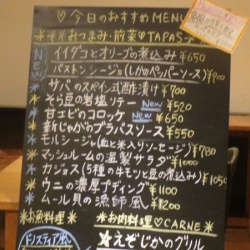 ♡今日のおすすめMENU♡
おつまみ・前菜♡TAPAS
NEW イイダコとオリーブの煮込み¥650
パストンシージョ(しかのペッパーソース)¥900
サバのスペイン式酢漬け ¥700
そら豆の岩塩ソテー New ¥520
甘エビのコロッケ New ¥650
新じゃがのブラバスソース ¥550
モルシージャ(血と米入りソーセージ) ¥780
マッシュルームの温製サラダ ¥1000
カジョス(5種の牛モツと豆の煮込)¥1200
ウニの濃厚プディング ¥1100
ムール貝の漁師風 ¥1200
★お魚料理★
★お肉料理♡CARNE★
ドノスティア風
★えぞじかのグリル